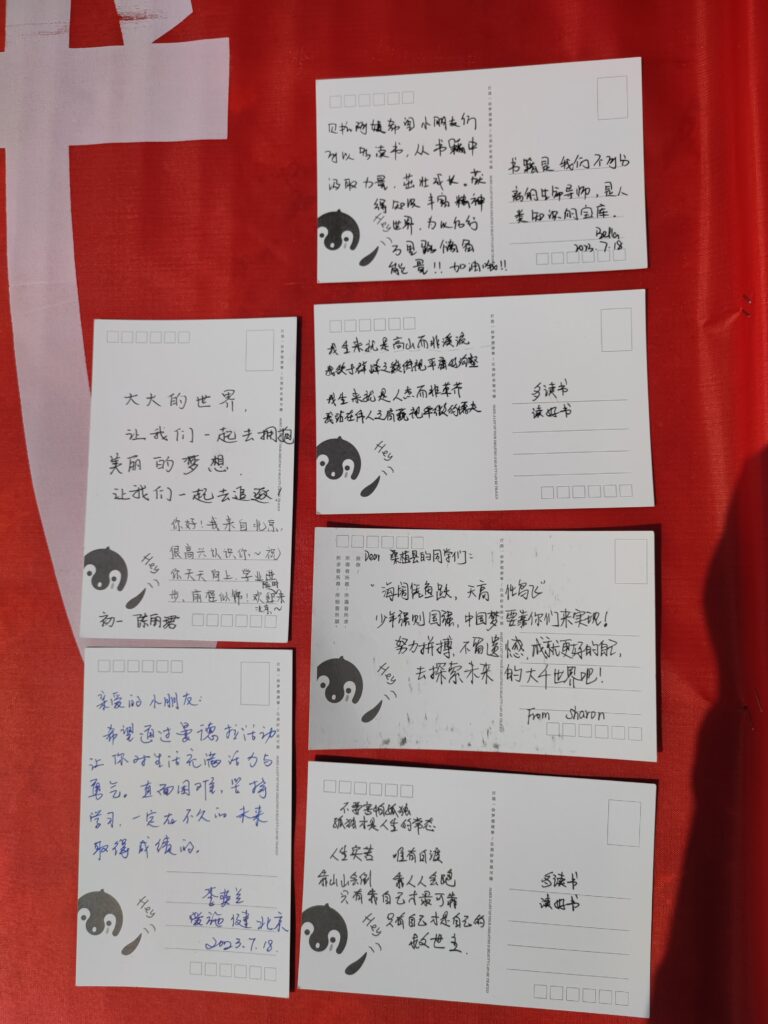 贝拉阿姨希望小朋友们
可以多读书，从书籍中
汲取力量，茁壮成长。获
得知识，丰富精神
世界，为以后行
万里路储备
能量！！加油哦！！
Hey
书籍是我们不可分
离的生命导师，是人
类知识的宝库．
Bella
2023.7.18
我生来就是高山而非溪流
我生来就是人杰而非草芥
Hey
多读书
读好书
大大的世界，
让我们一起去拥抱
美丽的梦想
让我们一起去追逐！
你好！我来自北京，
很高兴认识你～祝
你天天向上，学业进
步，
欢迎来
北京～
Hey
初一 陈雨君
Dear 桑植县的同学们：
“海阔凭鱼跃，天高任鸟飞”
少年强则国强，中国梦要靠你们来实现！
努力拼搏，不留遗憾，成就更好的自己，
去探索未来的大千世界吧！
Hey
From Sharon
亲爱的小朋友：
希望通过曼德拉活动
让你对生活充满活力与
勇气。直面困难，坚持
学习，一定在不久的未来
取得成绩的。
Hey
北京
2023.7.18
不要害怕孤独
孤独才是人生的常态
人生实苦 唯有自渡
靠山山会倒 靠人人会跑
只有靠自己才最可靠
只有自己才是自己的
救世主．
Hey
多读书
读好书